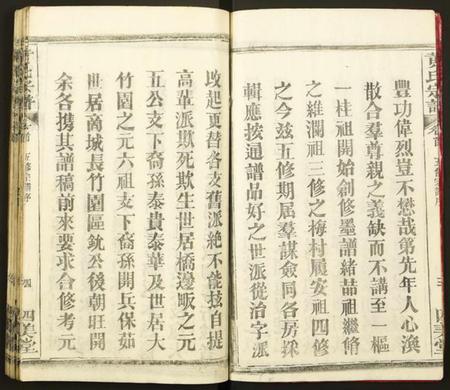 黃氏宗譜
卷首
五修宗譜序
豐功偉烈豈不懋哉第先年人心渙
散合羣尊親之義缺而不講至一樞
一桂祖開始創修墨譜緒喆祖繼脩
之維瀾祖三修之梅村履安祖四修
之今茲五修期屆羣謀僉同各房採
輯應按通譜品好之世派從治字派
四美堂
改起更替各支舊派絕不能技自提
高華派欺死欺生世居橋邊畈之元
五公支下裔孫泰貴泰華及世居大
竹園之元六祖支下裔孫開兵保如
世居商城長竹園區銃公後朝旺開
余各携其譜稿前來要求合修考元
黃氏宗譜
卷首
五修宗譜序
四
四美堂